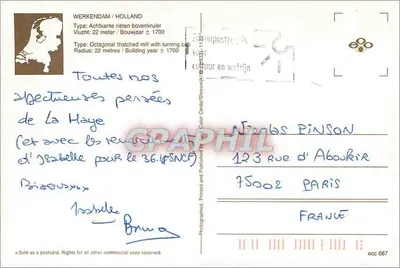 WERKENDAM / HOLLAND
Type: Achtkante rieten bovenkruier
Vlucht: 22 meter / Bouwjaar ± 1700
Type: Octagonal thatched mill with turning cap
Radius: 22 metres / Building year ± 1700
Toutes nos
affectueuses pensées
de La Haye
(et avec les remerciements
d'Isabelle pour le 36.15 SNCF)
Bisousxxxx
Isabelle
Bruno
Sold as a postcard. Rights for all other commercial uses reserved.
Photographed, Printed and Published
Nicolas PINSON
123 rue d'Aboukir
75002 PARIS
FRANCE
ecc 667
GRAPHIL